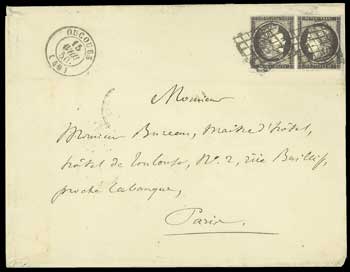 OUCQUES
15
(40)
Monsieur
Monsieur Bureau, Maître d'hôtel,
hôtel de Toulouse, No. 2, rue Baillif,
proche la banque,
Paris.